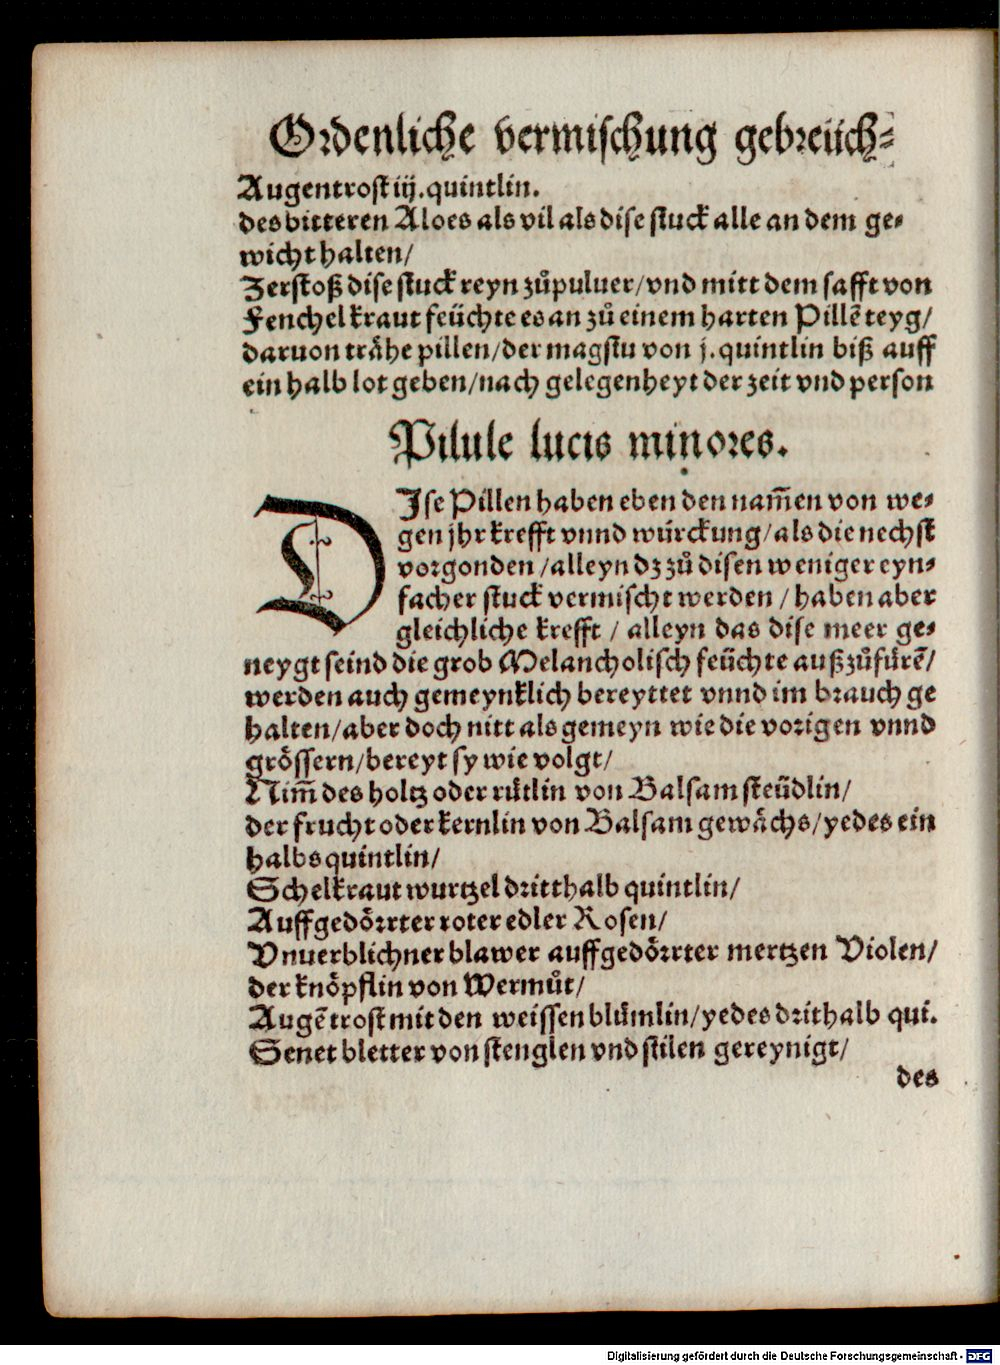 Ordenliche vermischung gebreüch⸗
Augentrost iij. quintlin.
des bitteren Aloes als vil als dise stuck alle an dem ge⸗
wicht halten/
Zerstoß dise stuck reyn zůpuluer/vnd mitt dem safft von
Fenchelkraut feüchte es an zů einem harten Pillẽ teyg/
daruon trähe pillen/der magstu von j. quintlin biß auff
ein halb lot geben/nach gelegenheyt der zeit vnd person
Pilule lucis minores.
DIse Pillen haben eben den nam̃en von we⸗
gen jhr krefft vnnd würckung/als die nechst
vorgonden/alleyn dz zů disen weniger eyn⸗
facher stuck vermischt werden/haben aber
gleichliche krefft/alleyn das dise meer ge⸗
neygt seind die grob Melancholisch feüchte außzůfürẽ/
werden auch gemeynklich bereyttet vnnd im brauch ge
halten/aber doch nitt als gemeyn wie die vorigen vnnd
grössern/bereyt sy wie volgt/
Nim̃ des holtz oder rütlin von Balsam steüdlin/
der frucht oder kernlin von Balsam gewächs/yedes ein
halbs quintlin/
Schelkraut wurtzel dritthalb quintlin/
Auffgedörrter roter edler Rosen/
Vnuerblichner blawer auffgedörrter mertzen Violen/
der knöpflin von Wermůt/
Augẽtrost mit den weissen blümlin/yedes drithalb qui.
Senet bletter von stenglen vnd stilen gereynigt/
des
Digitalisierung gefördert durch die Deutsche Forschungsgemeinschaft - DFG